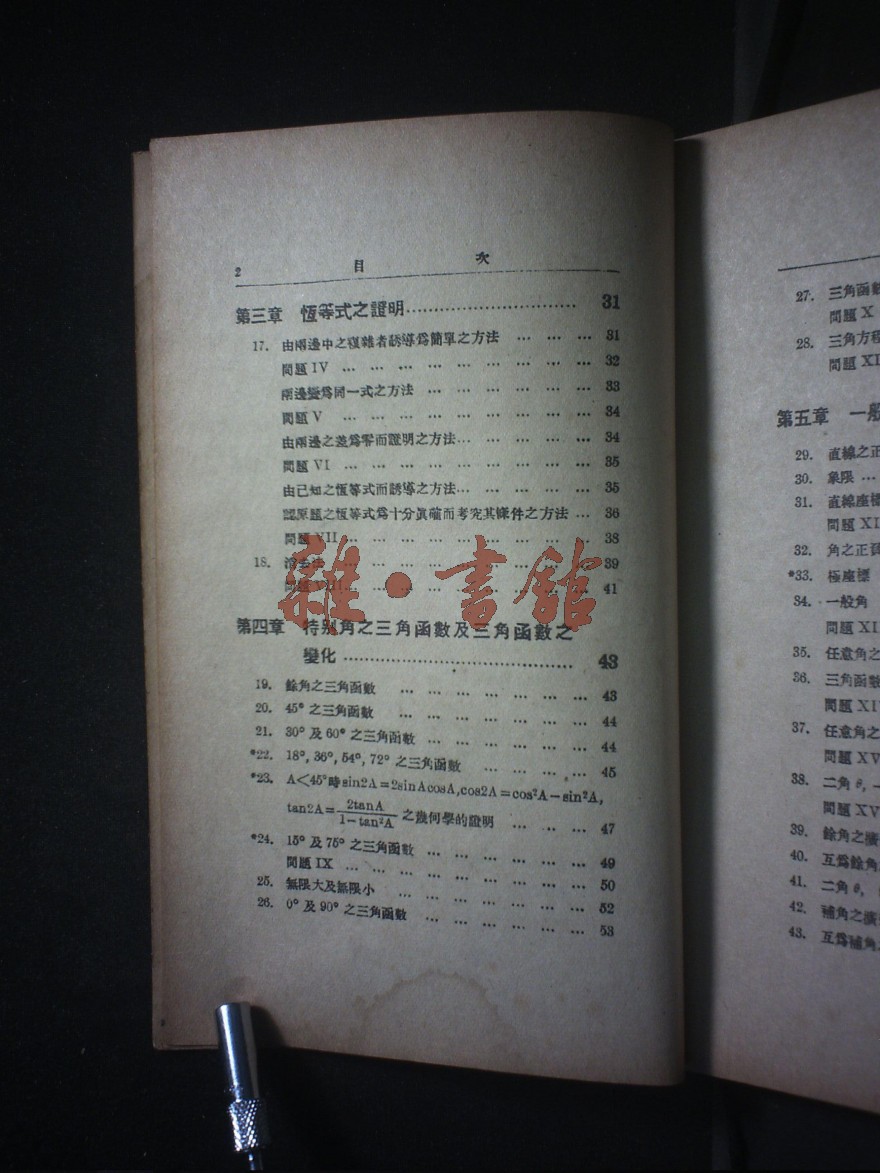 2 目 次
第三章 恆等式之證明 31
17. 由兩邊中之複雜者誘導爲簡單之方法 … … … 31
問題 IV … … … … … … … … 32
兩邊變爲同一式之方法 … … … … … 33
問題 V … … … … … … … … 34
由兩邊之差爲零而證明之方法… … … … … 34
問題 VI … … … … … … … … 35
由已知之恆等式而誘導之方法… … … … … 35
認原題之恆等式爲十分眞確而考究其條件之方法 … 36
問題 VII… … … … … … … … 38
18. 39
問題 VIII… … … … … … … … 41
雜·書館
第四章 特別角之三角函數及三角函數之
變化 43
19. 餘角之三角函數 … … … … … … … 43
20. 45° 之三角函數 … … … … … … … 44
21. 30° 及 60° 之三角函數 … … … … … … 44
*22. 18°, 36°, 54°, 72° 之三角函數 … … … … 45
*23. A<45°時sin2A=2sinAcosA,cos2A=cos²A−sin²A,
tan2A=2tanA/1−tan²A 之幾何學的證明 … … … 47
*24. 15° 及 75° 之三角函數 … … … … … … 49
問題 IX … … … … … … … … 50
25. 無限大及無限小 … … … … … … … 52
26. 0° 及 90° 之三角函數 … … … … … … 53
27. 三角函數
問題 X
28. 三角方程
問題 XI
第五章 一般
29. 直線之正
30. 象限 …
31. 直線座標
問題 XI
32. 角之正負
*33. 極座標
34. 一般角
問題 XI
35. 任意角之
36. 三角函數
問題 XI
37. 任意角之
問題 XV
38. 二角 θ, 一
問題 XV
39. 餘角之擴
40. 互爲餘角
41. 二角 θ,
42. 補角之擴
43. 互爲補角